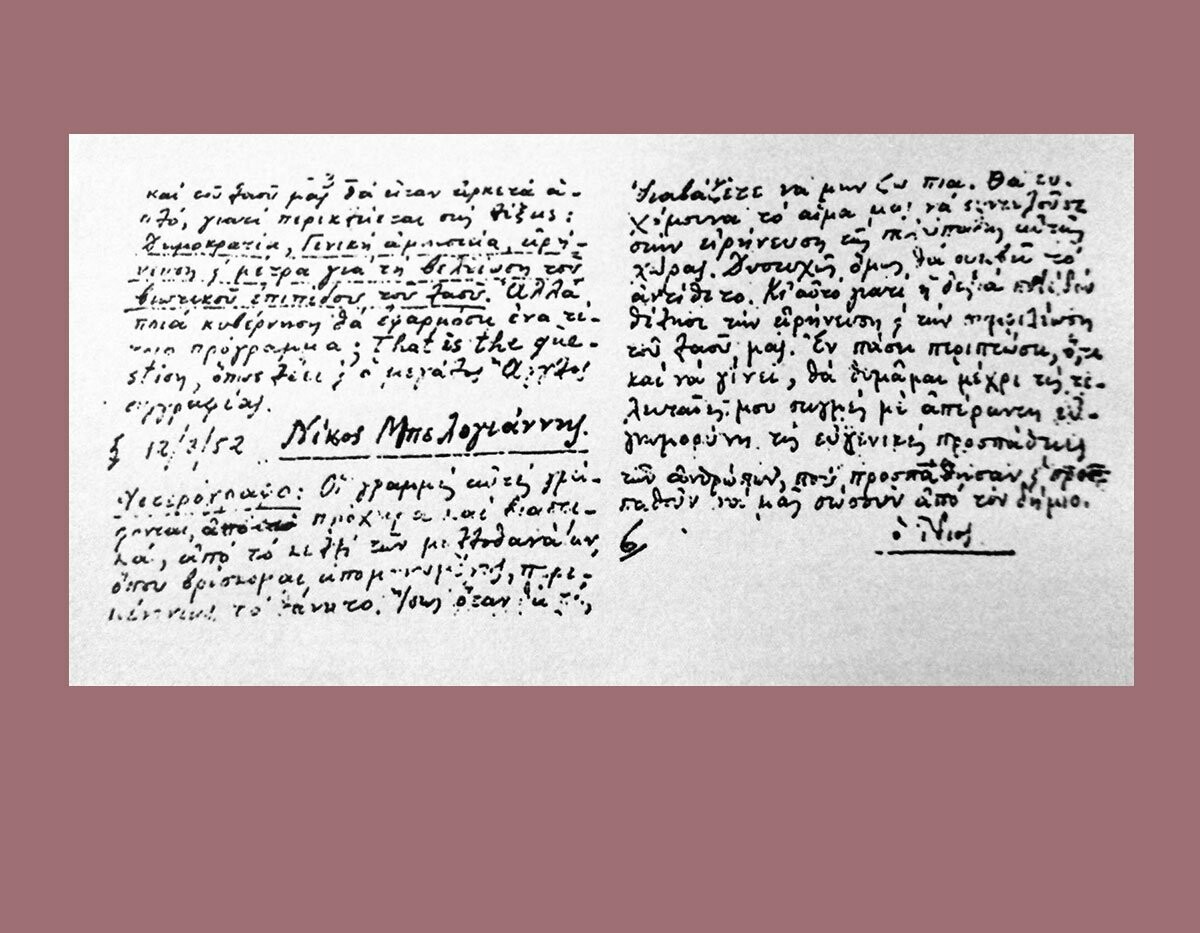 καί τοῦ λαοῦ μας θά εἶταν ἀρκετά ἁ-
πλό, γιατί περικλείεται στίς λέξεις:
Δημοκρατία, Γενική ἀμνηστεία, εἰρή-
νευση καί μέτρα γιά τή βελτίωση τοῦ
βιωτικοῦ ἐπιπέδου τοῦ λαοῦ. Ἀλλά
ποιά κυβέρνηση θά ἐφαρμόσει ἕνα τέ-
τοιο πρόγραμμα; That is the que-
stion, ὅπως λέει καί ὁ μεγάλος Ἄγγλος
συγγραφέας.
12/3/52 Νίκος Μπελογιάννης.
Ὑστερόγραφο: Οἱ γραμμές αὐτές γρά-
φονται, ἀπό τό πρόχειρα καί βιαστι-
κά, ἀπό τό κελλί τῶν μελλοθανάτων
ὅπου βρίσκομαι ἀπομονωμένος, περι-
μένοντας τό θάνατο. Ἴσως ὅταν θά τίς
διαβάζετε νά μήν ζῶ πιά. Θά εὐ-
χόμουνα τό αἷμα μου νά συντελοῦσε
στήν εἰρήνευση τῆς πολύπαθης αὐτῆς
χώρας. Δυστυχῶς ὅμως θά συμβεῖ τό
ἀντίθετο. Κι' αὐτό γιατί ἡ δεξιά ποτέ δέν
θέλησε τήν εἰρήνευση καί τήν συμφιλίωση
τοῦ λαοῦ μας. Ἐν πάσει περιπτώσει, ὅ,τι
καί νά γίνει, θά θυμᾶμαι μέχρι τίς τε-
λευταῖες μου στιγμές μέ ἀπέραντη εὐ-
γνωμοσύνη τίς εὐγενικές προσπάθειες
τῶν ἀνθρώπων, πού προσπάθησαν καί προσ-
παθοῦν νά μᾶς σώσουν ἀπό τόν δήμιο.
6
ὁ ἴδιος